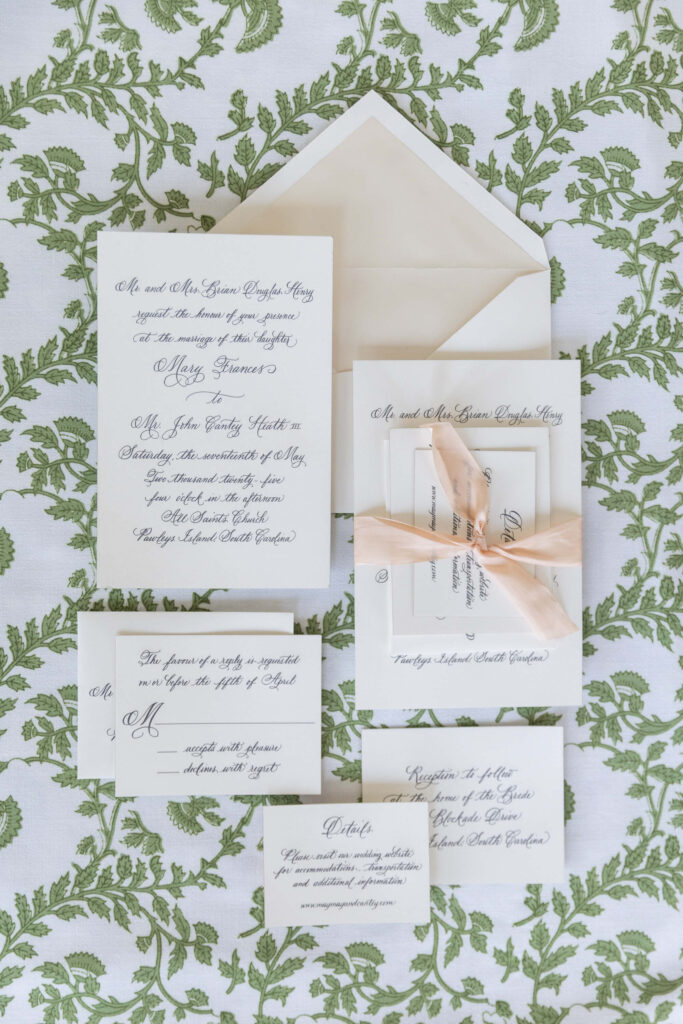 Mr. and Mrs. Brian Douglas Henry
request the honour of your presence
at the marriage of their daughter
Mary Frances
to
Mr. John Cantey Heath III
Saturday, the seventeenth of May
Two thousand twenty-five
four o'clock in the afternoon
All Saints Church
Pawleys Island, South Carolina
Mr. and Mrs. Brian Douglas Henry
Deta
website
transportation
Pawleys Island, South Carolina
The favour of a reply is requested
on or before the fifth of April
M
accepts with pleasure
declines with regret
Reception to follow
at the home of the Bride
Blockade Drive
Island, South Carolina
Details
Please visit our wedding website
for accommodations, transportation
and additional information